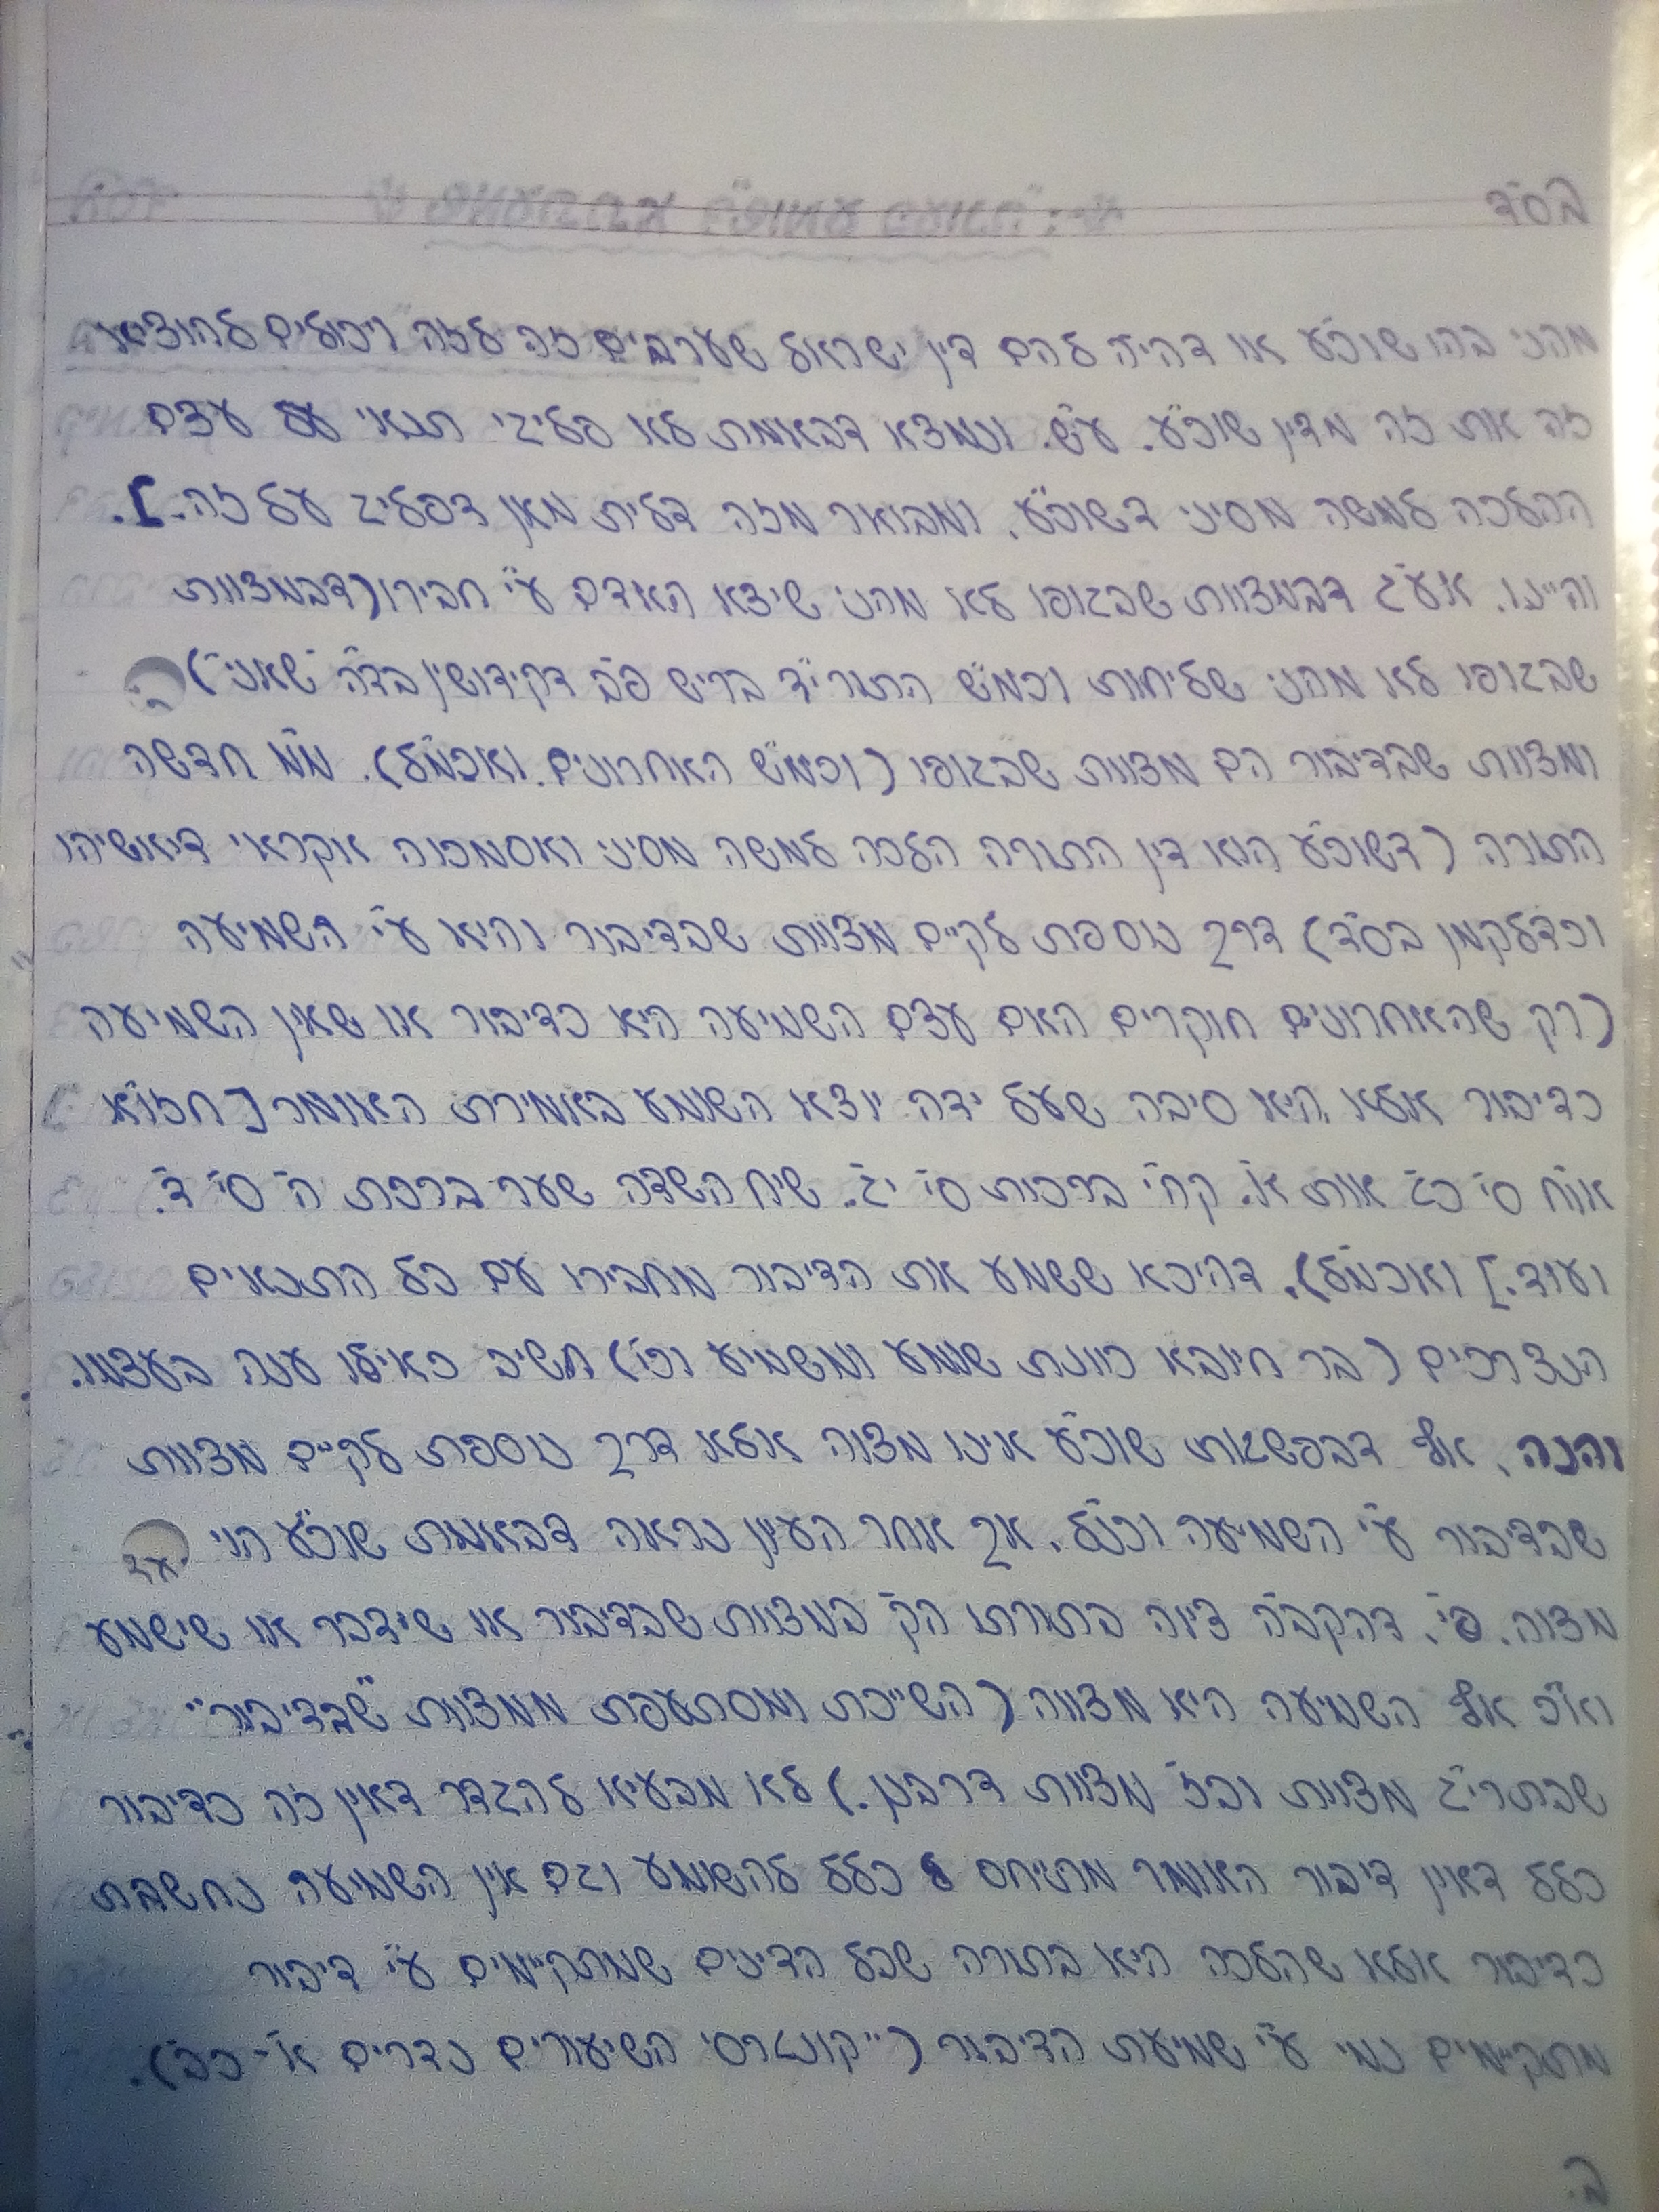 בס"ד
מהני בהו שוכ"ע או דהיה להם דין ישראל שערבים זה לזה ויכולים להוציא
זה את זה מדין שוכ"ע. ע"ש. ונמצא דבאמת לא פליגי תנאי עצם
ההלכה למשה מסיני דשוכ"ע, ומבואר מזה דלית מאן דפליג על זה.].
והיינו. אע"ג דבמצוות שבגופו לא מהני שיצא האדם ע"י חבירו (דבמצוות
שבגופו לא מהני שליחות וכמ"ש התורי"ד בריש פ"ב דקידושין בד"ה "שאני")
ומצוות שבדיבור הם מצוות שבגופו (וכמ"ש האחרונים. ואכמ"ל). מ"מ חדשה
התורה (דשוכ"ע הוא דין התורה הלכה למשה מסיני ואסמכוה אקראי דיאשיהו
וכדלקמן בס"ד) דרך נוספת לקיים מצוות שבדיבור והיא ע"י השמיעה
(רק שהאחרונים חוקרים האם עצם השמיעה היא כדיבור או שאין השמיעה
כדיבור אלא היא סיבה שעל ידה יוצא השומע באמירת האומר [חזו"א
או"ח סי' כ"ט אות א'. קה"י ברכות סי' י"ג. שיח השדה שער ברכת ה' סי' ד'.
ועוד.] ואכמ"ל). דהיכא ששמע את הדיבור מחבירו עם כל התנאים
הנצרכים (בר חיובא כוונת שומע ומשמיע וכו') חשיב כאילו ענה בעצמו.
והנה, אף דבפשטות שוכ"ע אינו מצוה אלא דרך נוספת לקיים מצוות
שבדיבור ע"י השמיעה וכנ"ל. אך אחר העיון נראה דבאמת שוכ"ע הוי
מצוה. פי', דהקב"ה ציוה בתורתו הק' במצוות שבדיבור או שידבר או שישמע
וא"כ אף השמיעה היא מצווה (השייכת ומסתעפת ממצוות "שבדיבור"
שבתרי"ג מצוות ובז' מצוות דרבנן.) לא מבעיא להגדר דאין זה כדיבור
כלל דאין דיבור האומר מתיחס כלל להשומע וגם אין השמיעה נחשבת
כדיבור אלא שהלכה היא בתורה שכל הדינים שמתקיימים ע"י דיבור
מתקיימים נמי ע"י שמיעת הדיבור ("קונטרסי השיעורים נדרים א'- כב').
ב.